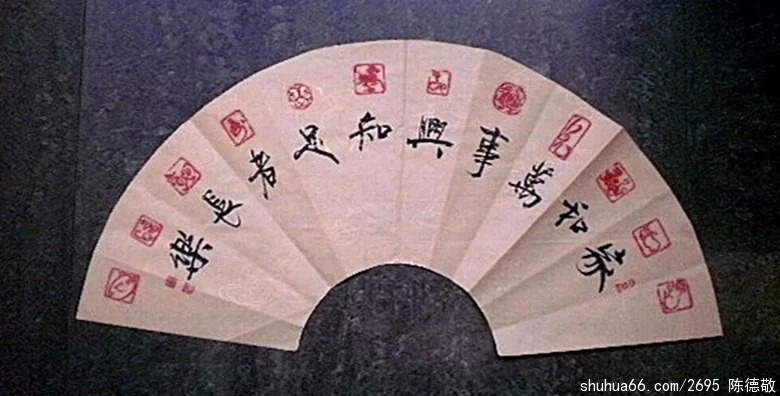 家和萬事興知足者常樂
shuhua66.com/2695 陈德敬